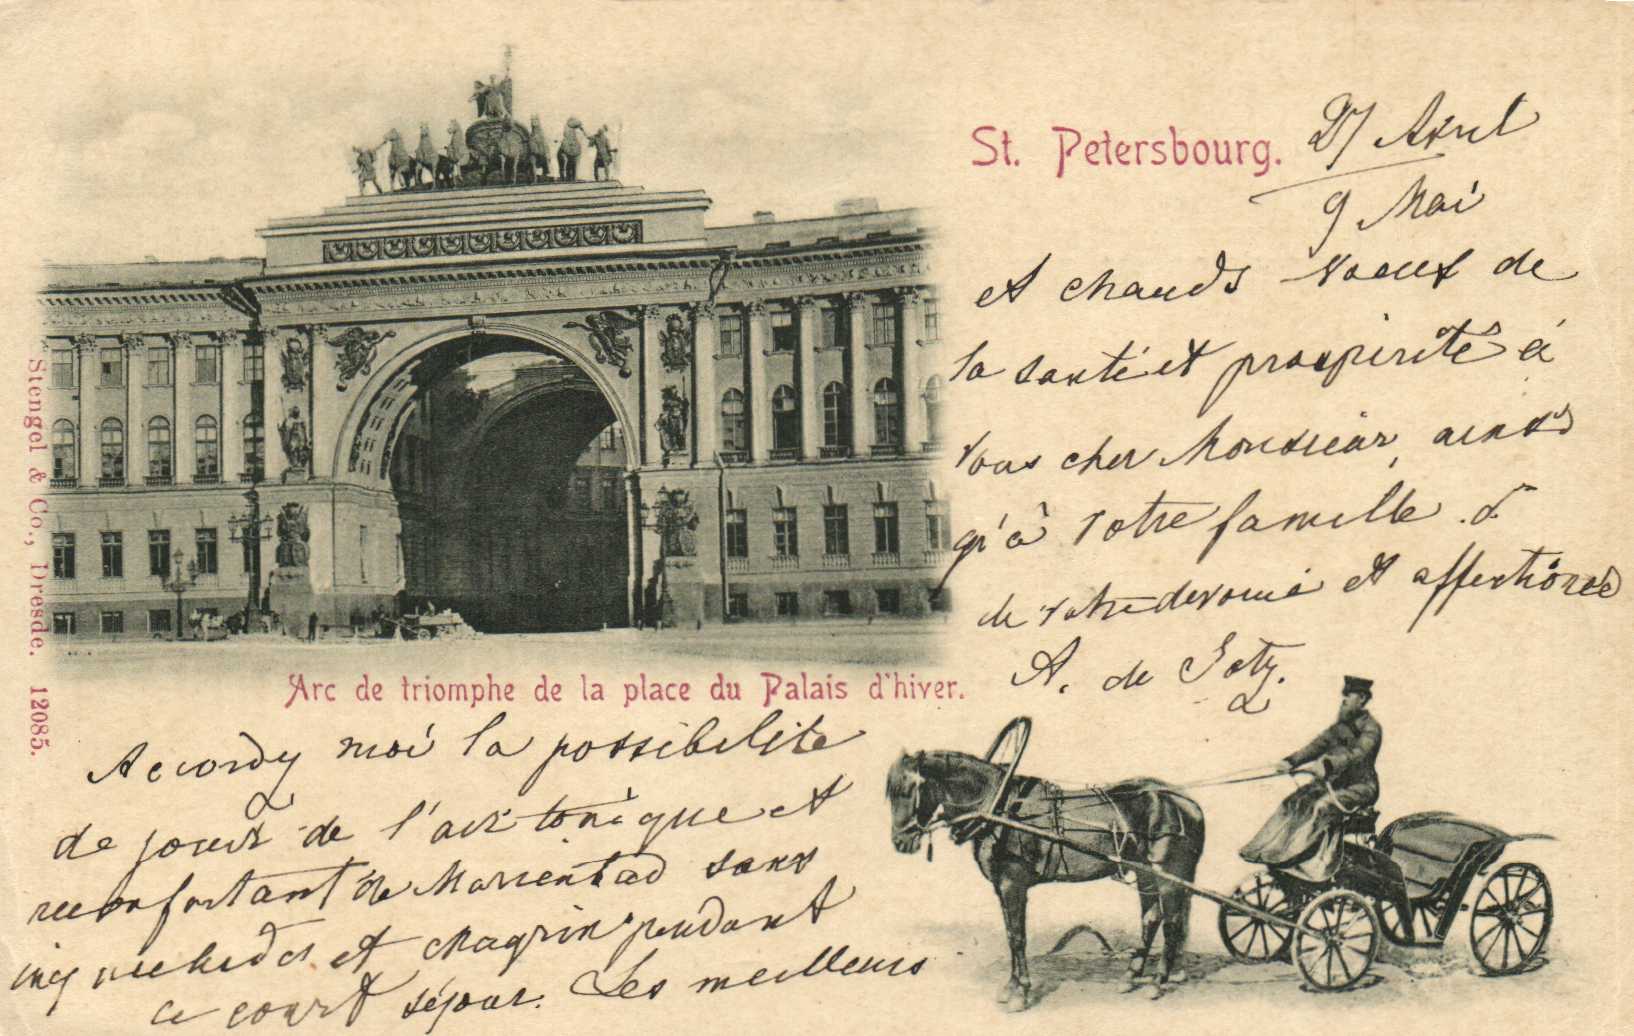 St. Petersbourg.
27 Avril
9 Mai
Arc de triomphe de la place du Palais d'hiver.
Stengel & Co., Dresde. 12085.
Accordez moi la possibilite
de jouir de l'air tonique et
reconfortant de Marienbad sans
et chagrin pendant
ce court séjour. Les meilleurs
et chauds voeux de
la santé et prospérité à
vous cher Monsieur, ainsi
qu'à votre famille.
de votre devoué et affectioné
A. de